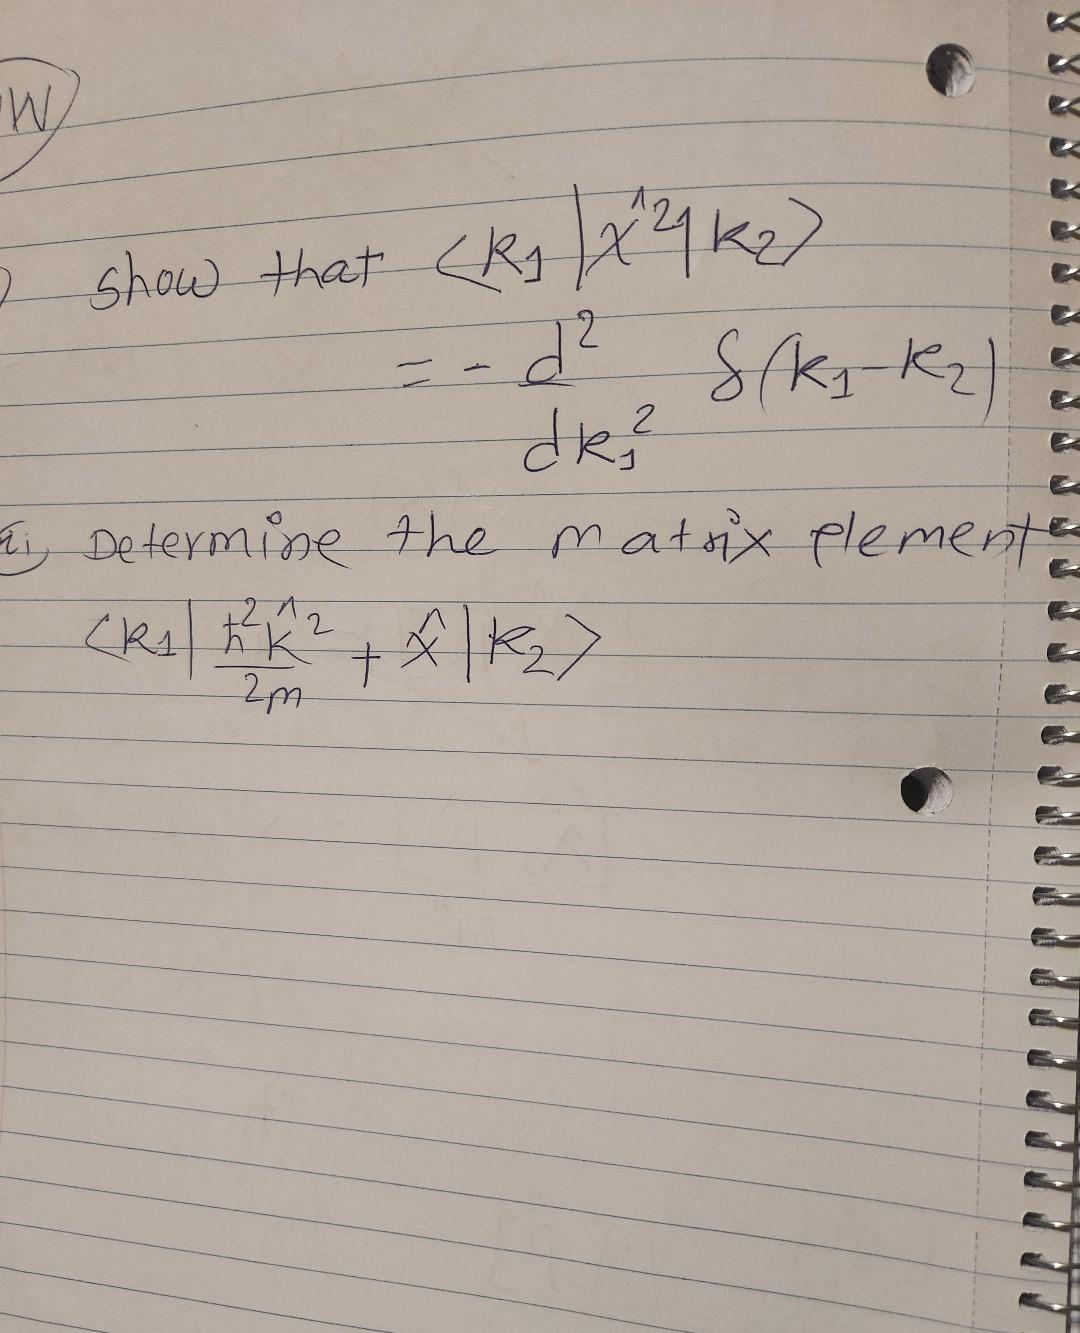 W
) show that ⟨k₁|x̂²|k₂⟩
= - d²/dk₁² δ(k₁-k₂)
ii) Determine the matrix element
⟨k₁| ħ²k̂²/2m + x̂ |k₂⟩